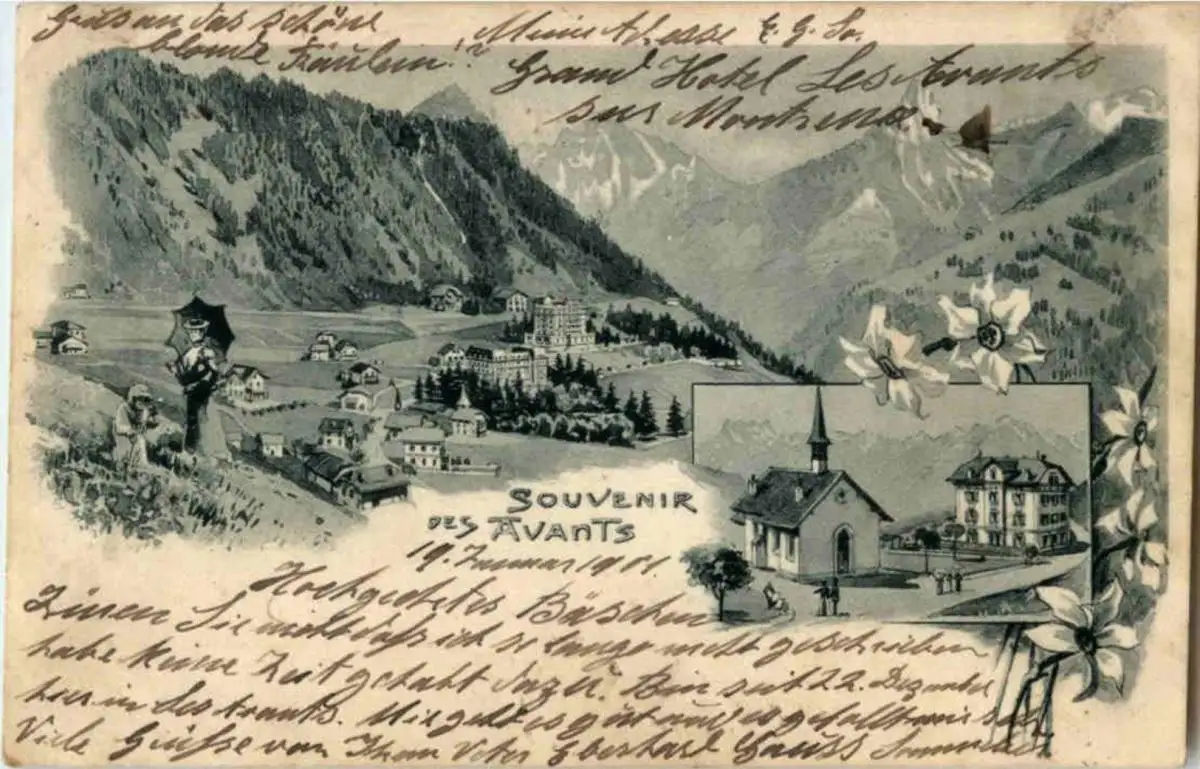 Gruss an das schöne
blonde Fräulein!?
Meine Adresse E. G. Sn.
Grand Hotel Les Avants
sur Montreux
SOUVENIR
DES AVANTS
19. Januar 1901.
Hochgeehrtes Bäschen
Zürnen Sie nicht daß ich so lange nicht geschrieben
habe keine Zeit gehabt dazu. Bin seit 22. Dezember
hier in Les Avants. Mir geht es gut und es gefällt mir
Viele Grüße von Ihrem Vetter Eberhard Gauss